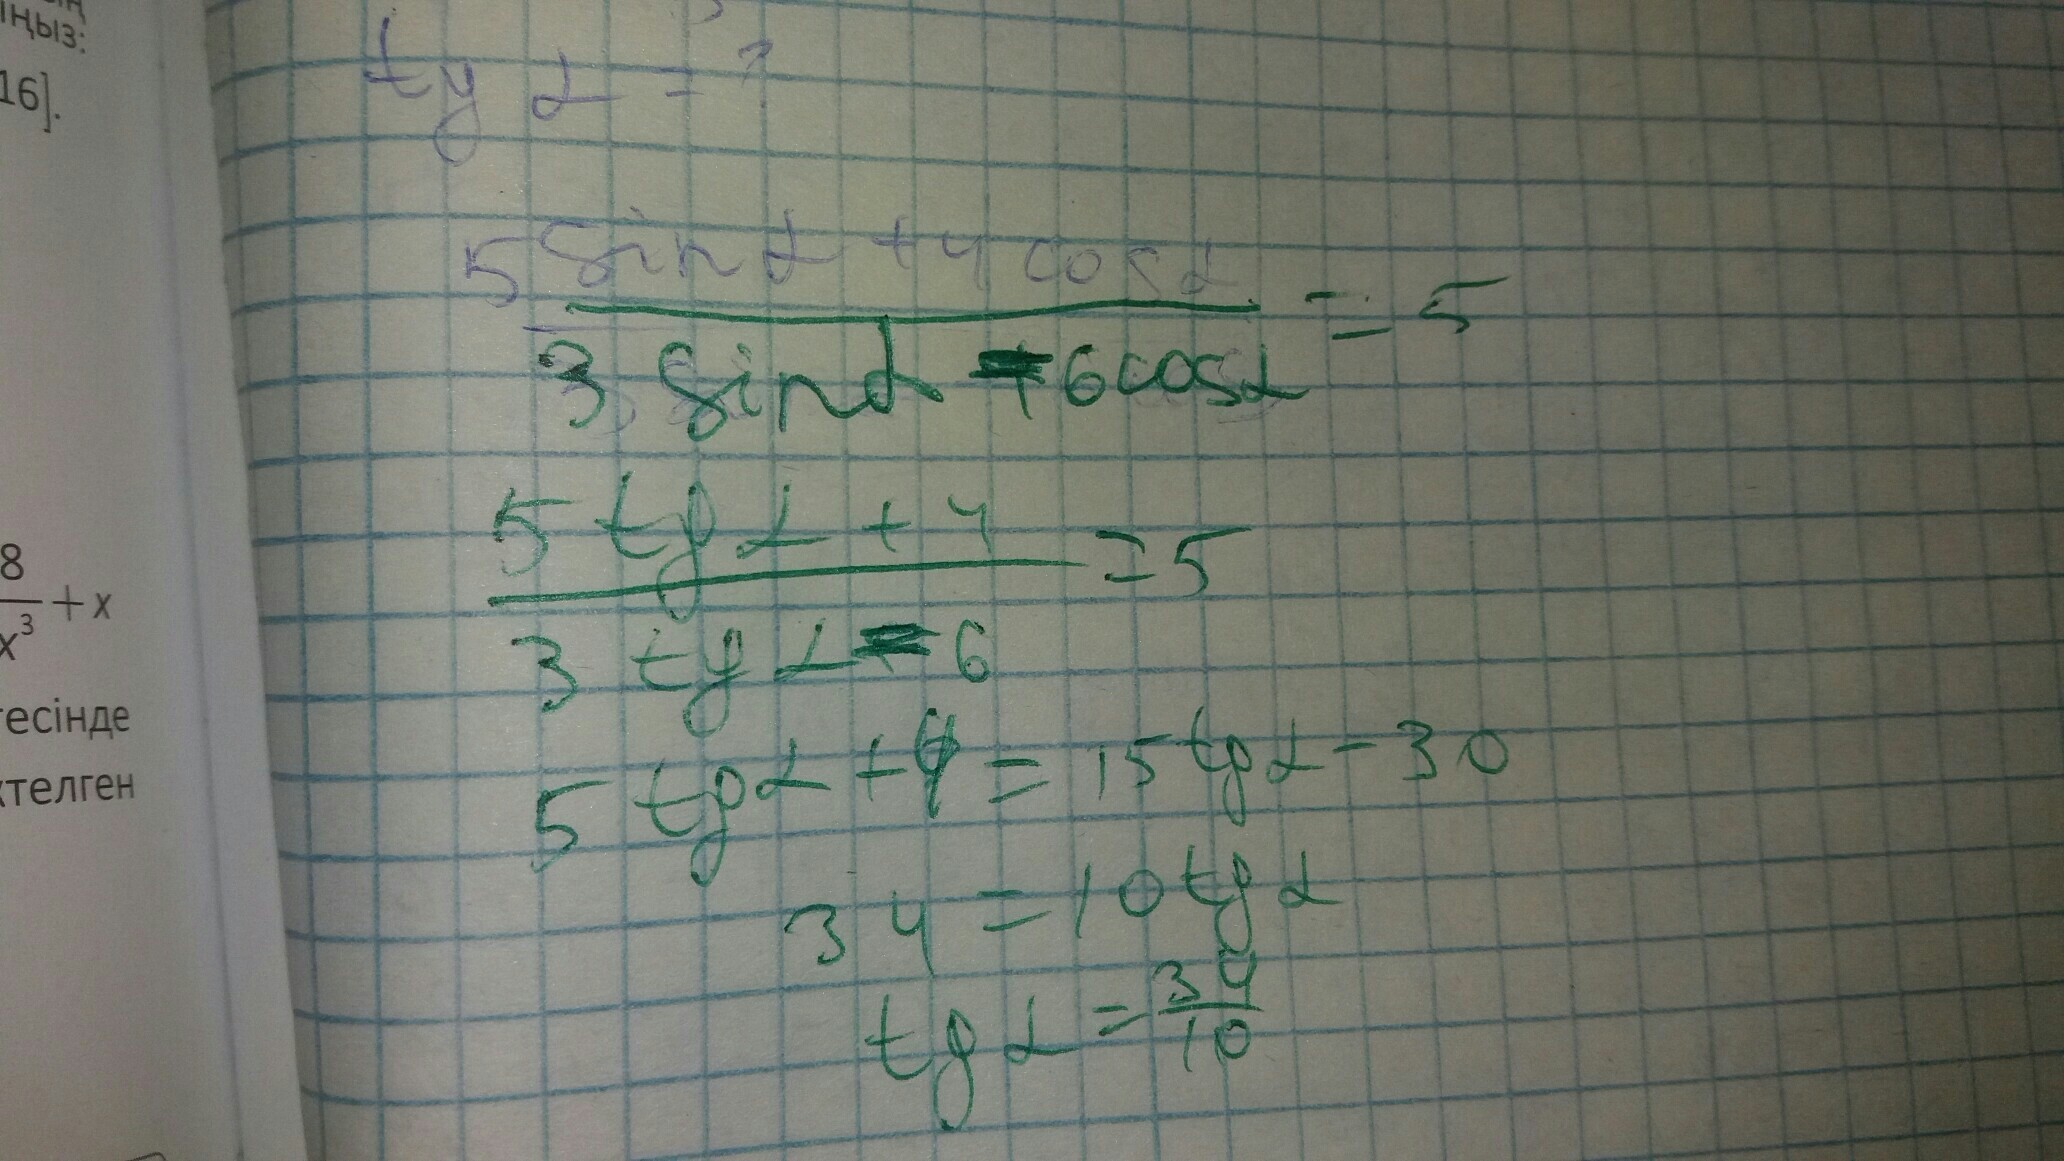 ңыз:
16].
8
x³ + x
есінде
ктелген
tg α = ?
5 sin α + 4 cos α
3 sin α - 6 cos α = 5
5 tg α + 4
3 tg α - 6 = 5
5 tg α + 4 = 15 tg α - 30
34 = 10 tg α
tg α = 34/10